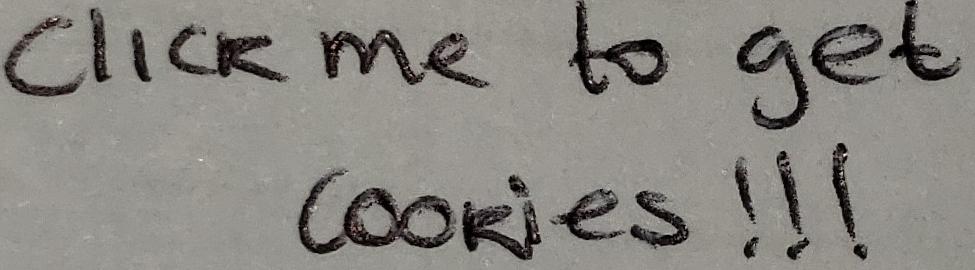 Click me to get
Cookies!!!